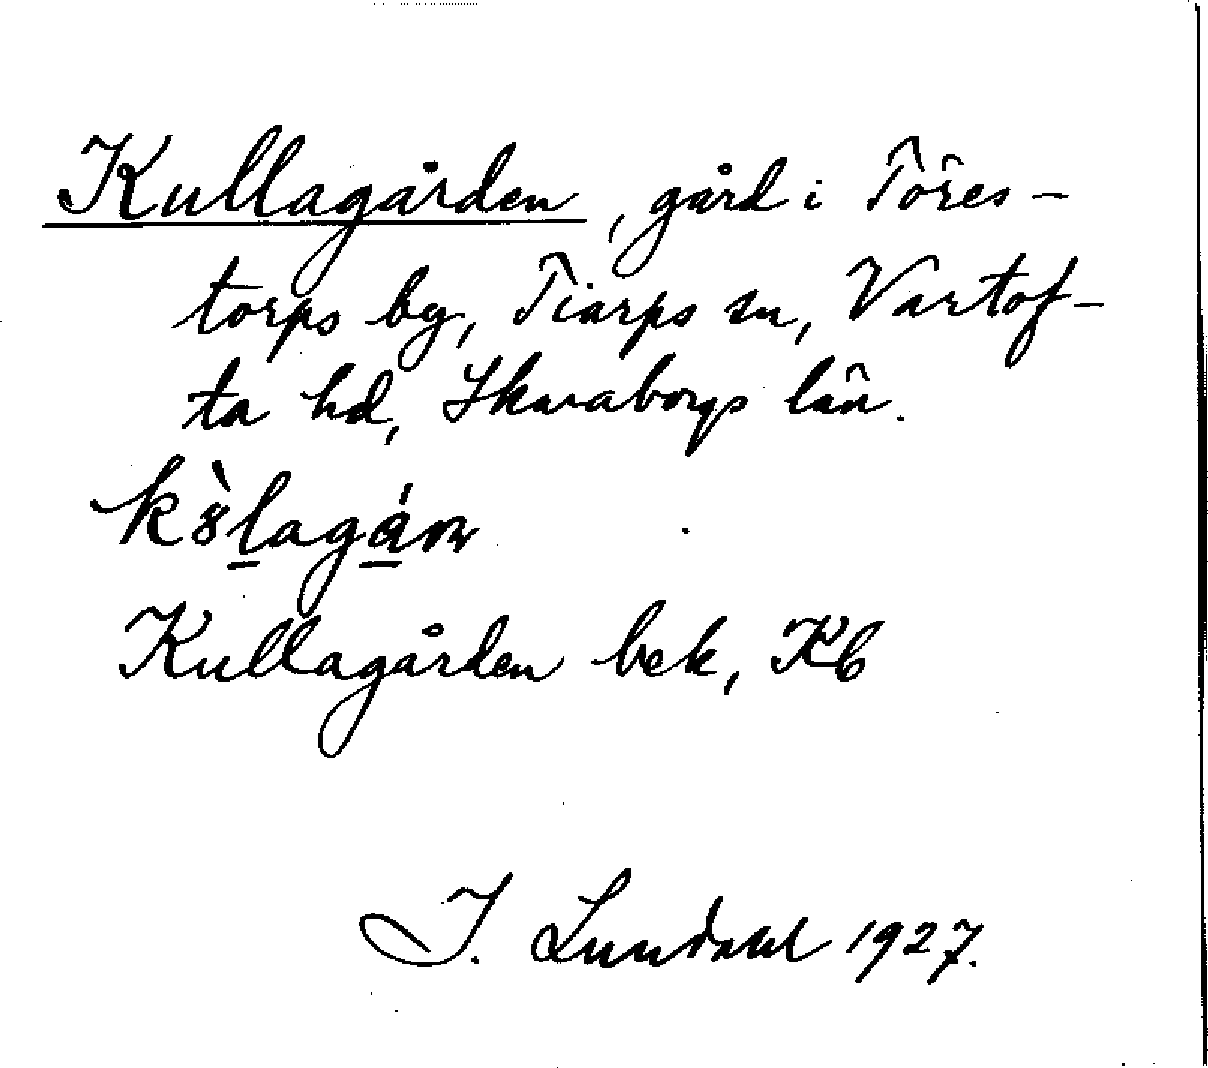 Kullagården, gård i Töres-
torps by, Tiarps sn, Vartof-
ta hd, Skaraborgs län.
kȣ̀lagán
Kullagården bek, Kb
I. Lundahl 1927.